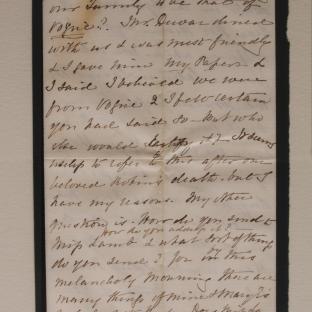 our family are that of
Vogrie? Mr. Dewar dined
with us & was most friendly
& I gave him my Papers &
I said I believed we were
from Vogrie & I felt certain
you had said so – But who
else would testify it? It seems
useless to refer to this after our
beloved Robin's death – but I
have my reasons. My other
question is – How do you send to
How do you address it?
Miss Lamb & what sort of thing
do you send? for in this
melancholy mourning there are
many things of mine & Mary's